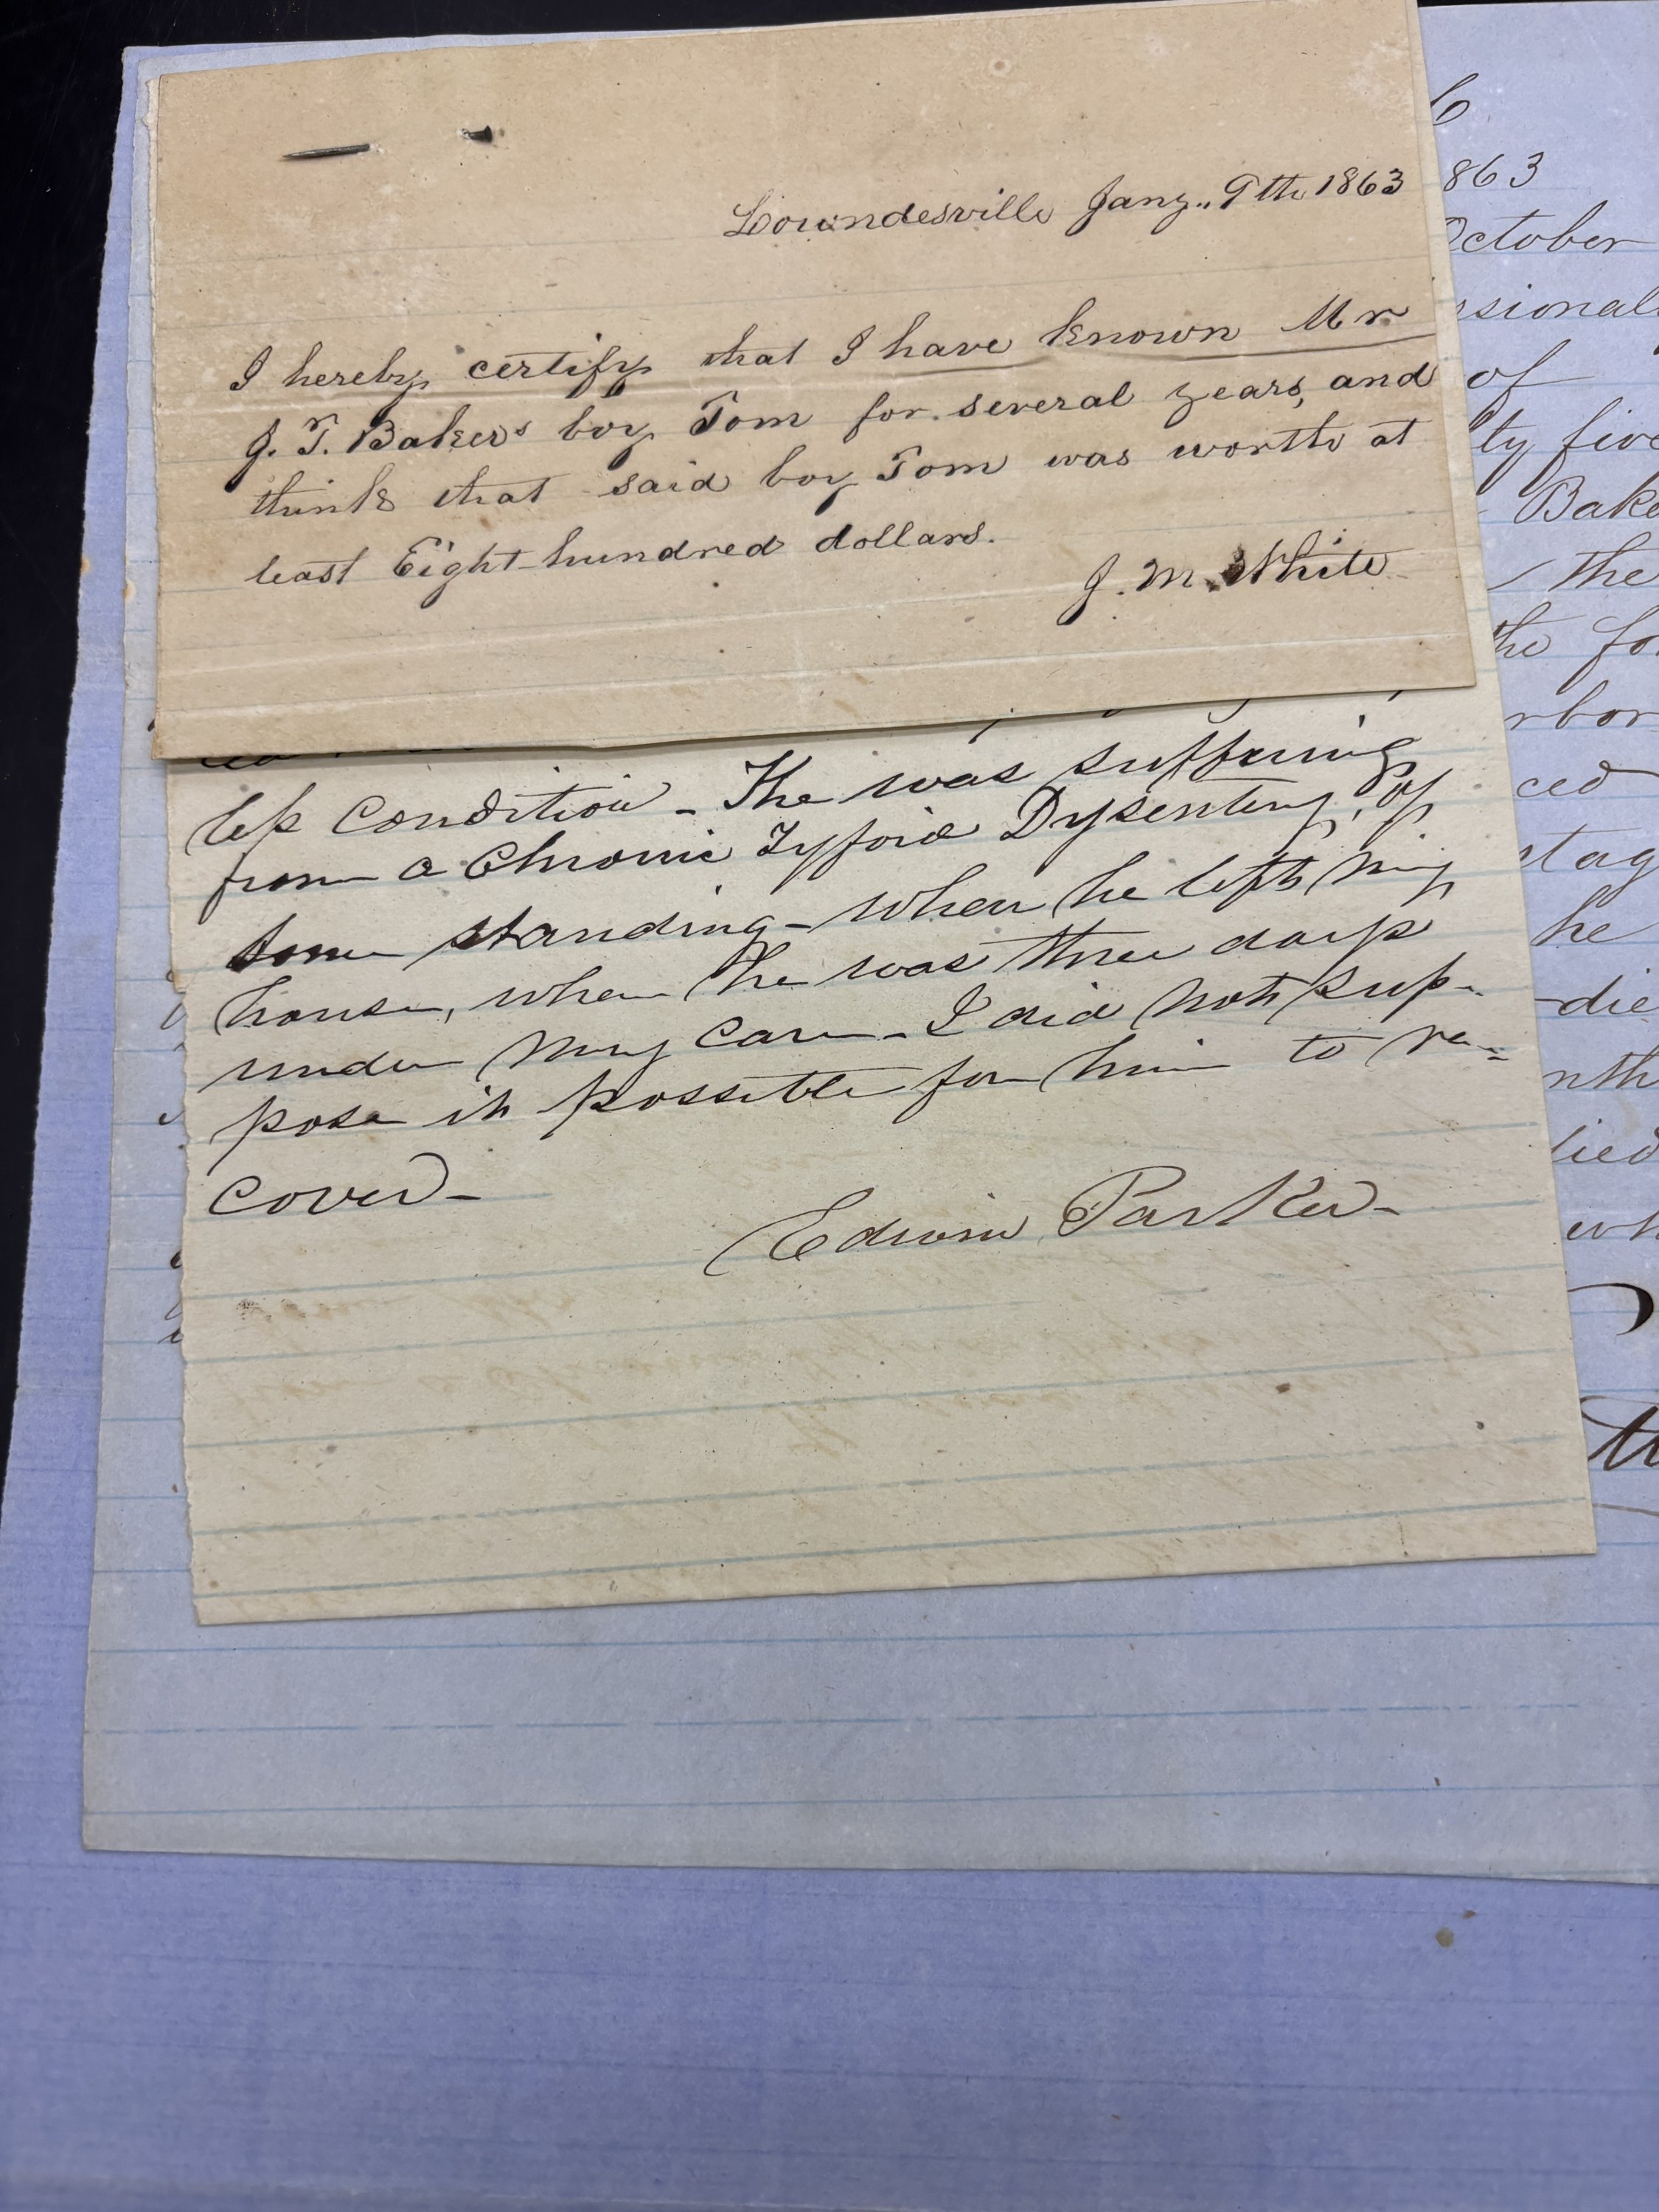 Lowndesville Jany.. 9th 1863
I hereby certify that I have known Mr
J. T. Bakers boy Tom for several years, and
think that said boy Tom was worth at
least Eight hundred dollars.
J. M. White
less condition - He was suffering
from a Chronic Tyfoid Dysentery, of
some standing - when he left my
house, when he was three days
under my care - I did not sup-
pose it possible for him to re-
cover -
Edwin Parker -
863
October
ssional
of
ty five
Bake
the
he fo
rbor
ced
stag
he
die
nth
died
wh